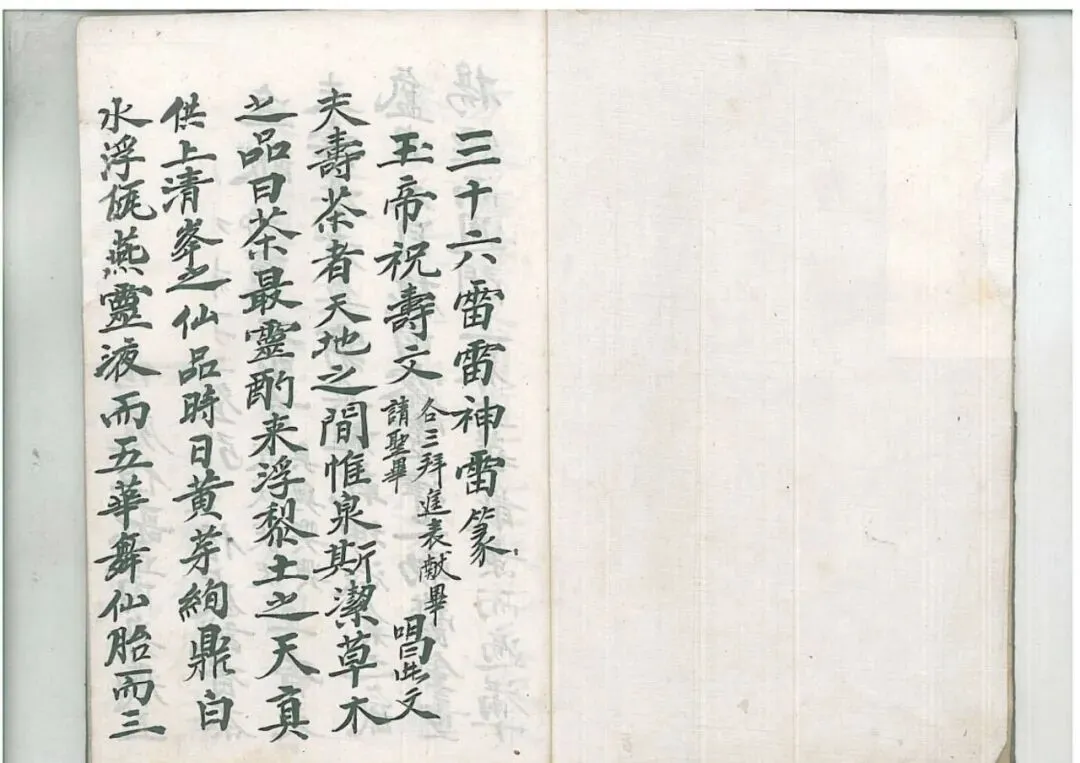 三十六雷雷神雷篆
玉帝祝壽文
仝三拜進表献畢
請聖畢
唱此文
夫壽茶者天地之間惟泉斯潔草木
之品曰茶最靈酌来浮黎土之天真
供上清峯之仙品時日黄芽絢鼎白
水浮甌燕靈液而五華舞仙胎而三